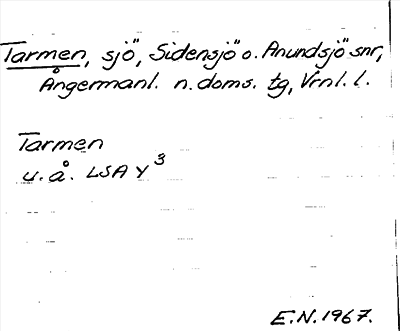 Tarmen, sjö, Sidensjö o. Anundsjö snr,
Ångermanl. n. doms. tg, Vrnl. l.
Tarmen
u. å. LSA Y3
E.N. 1967.